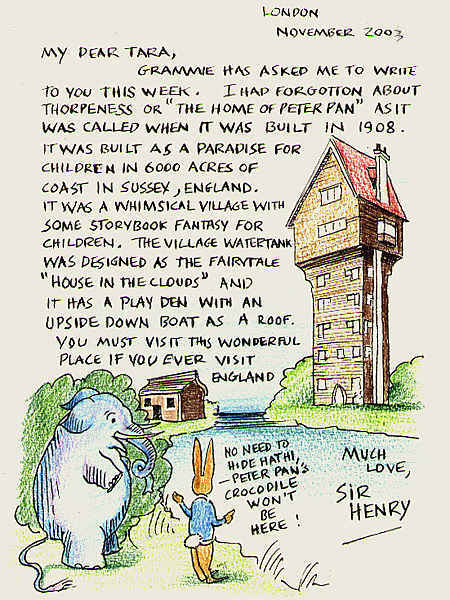 LONDON
NOVEMBER 2003
MY DEAR TARA,
GRAMMIE HAS ASKED ME TO WRITE
TO YOU THIS WEEK. I HAD FORGOTION ABOUT
THORPENESS OR "THE HOME OF PETER PAN" AS IT
WAS CALLED WHEN IT WAS BUILT IN 1908.
IT WAS BUILT AS A PARADISE FOR
CHILDREN IN 6000 ACRES OF
COAST IN SUSSEX, ENGLAND.
IT WAS A WHIMSICAL VILLAGE WITH
SOME STORYBOOK FANTASY FOR
CHILDREN. THE VILLAGE WATERTANK
WAS DESIGNED AS THE FAIRYTALE
"HOUSE IN THE CLOUDS" AND
IT HAS A PLAY DEN WITH AN
UPSIDE DOWN BOAT AS A ROOF.
YOU MUST VISIT THIS WONDERFUL
PLACE IF YOU EVER VISIT
ENGLAND
NO NEED TO
HIDE HATHI,
–PETER PAN'S
CROCODILE
WON'T
BE
HERE!
MUCH
LOVE,
SIR
HENRY